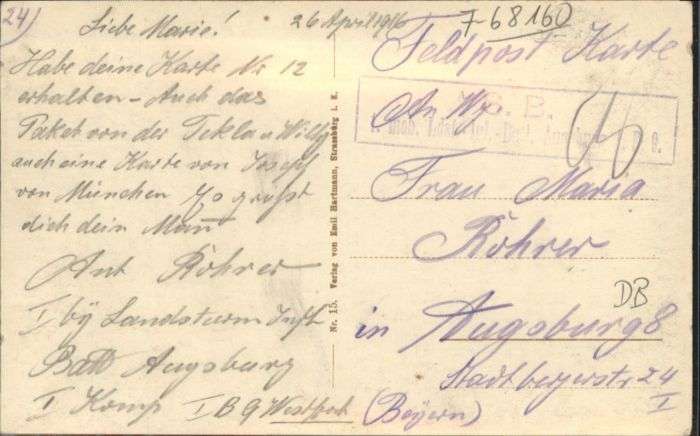 24)
26 April 1916
Liebe Marie!
Habe deine Karte Nr 12
erhalten – Auch das
Paket von der Tekla u Wilh
auch eine Karte von Josef
von München grüßt
dich dein Mann
Ant Röhrer
I bÿ Landsturm Inft
Batt Augsburg
I Komp I B 9 Westfront
Nr. 15. Verlag von Emil Hartmann, Strassburg i. E.
7-68160
Feldpost Karte
S. B.
An
Frau Maria
Röhrer
DB
in Augsburg 8
Stadtbergerstr 24
I
(Bayern)